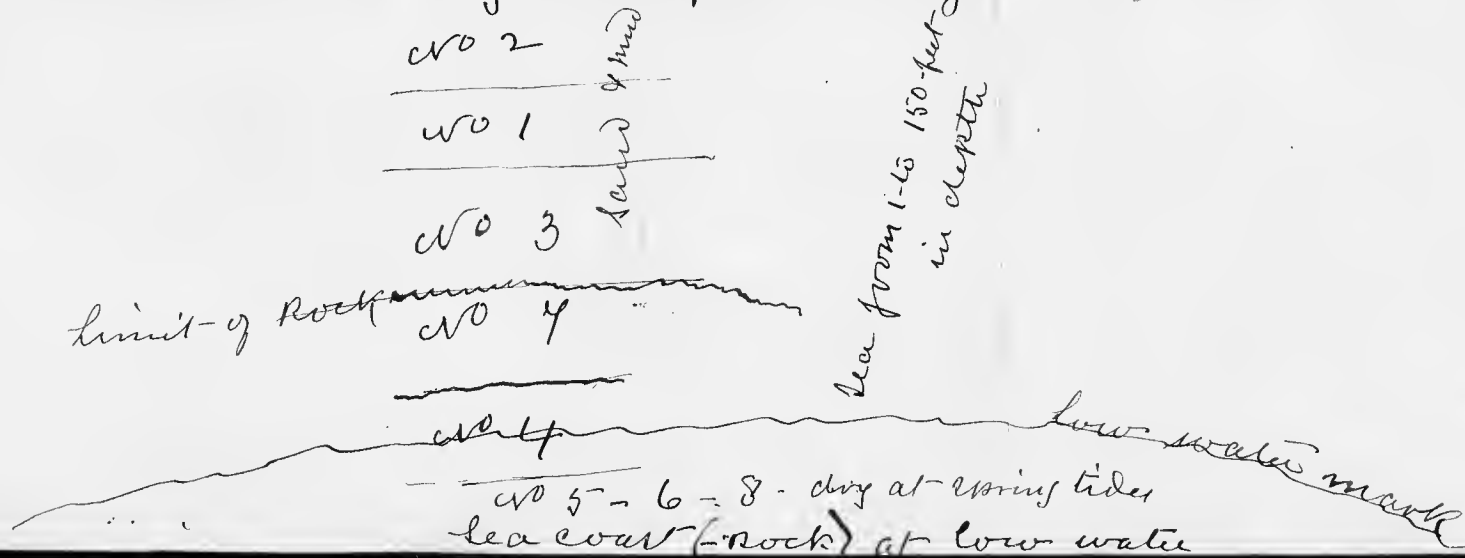 No 2
No 1
No 3
Sand & mud
Sea from 1 to 150 feet
in depth
limit of Rock
No 7
No 4
low water mark
No 5 - 6 - 8 - dry at spring tides
Sea coast (-Rock) at low water